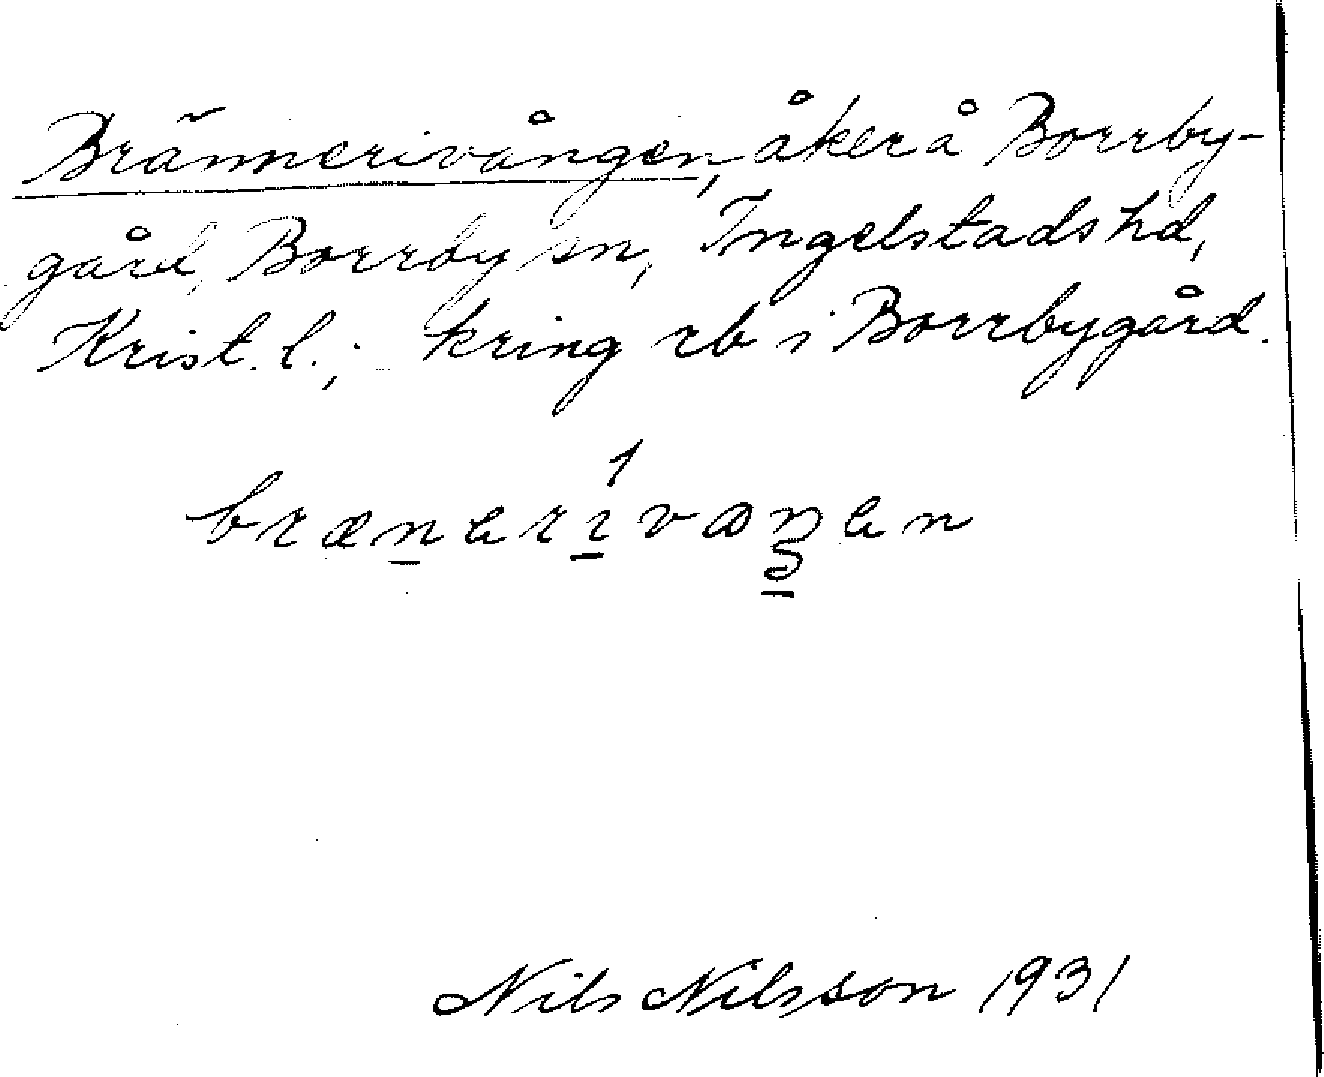 Brännerivången, åker å Borrby-
gård, Borrby sn, Ingelstads hd,
Krist. l.; kring rb i Borrbygård.
brænerivaŋen
Nils Nilsson 1931